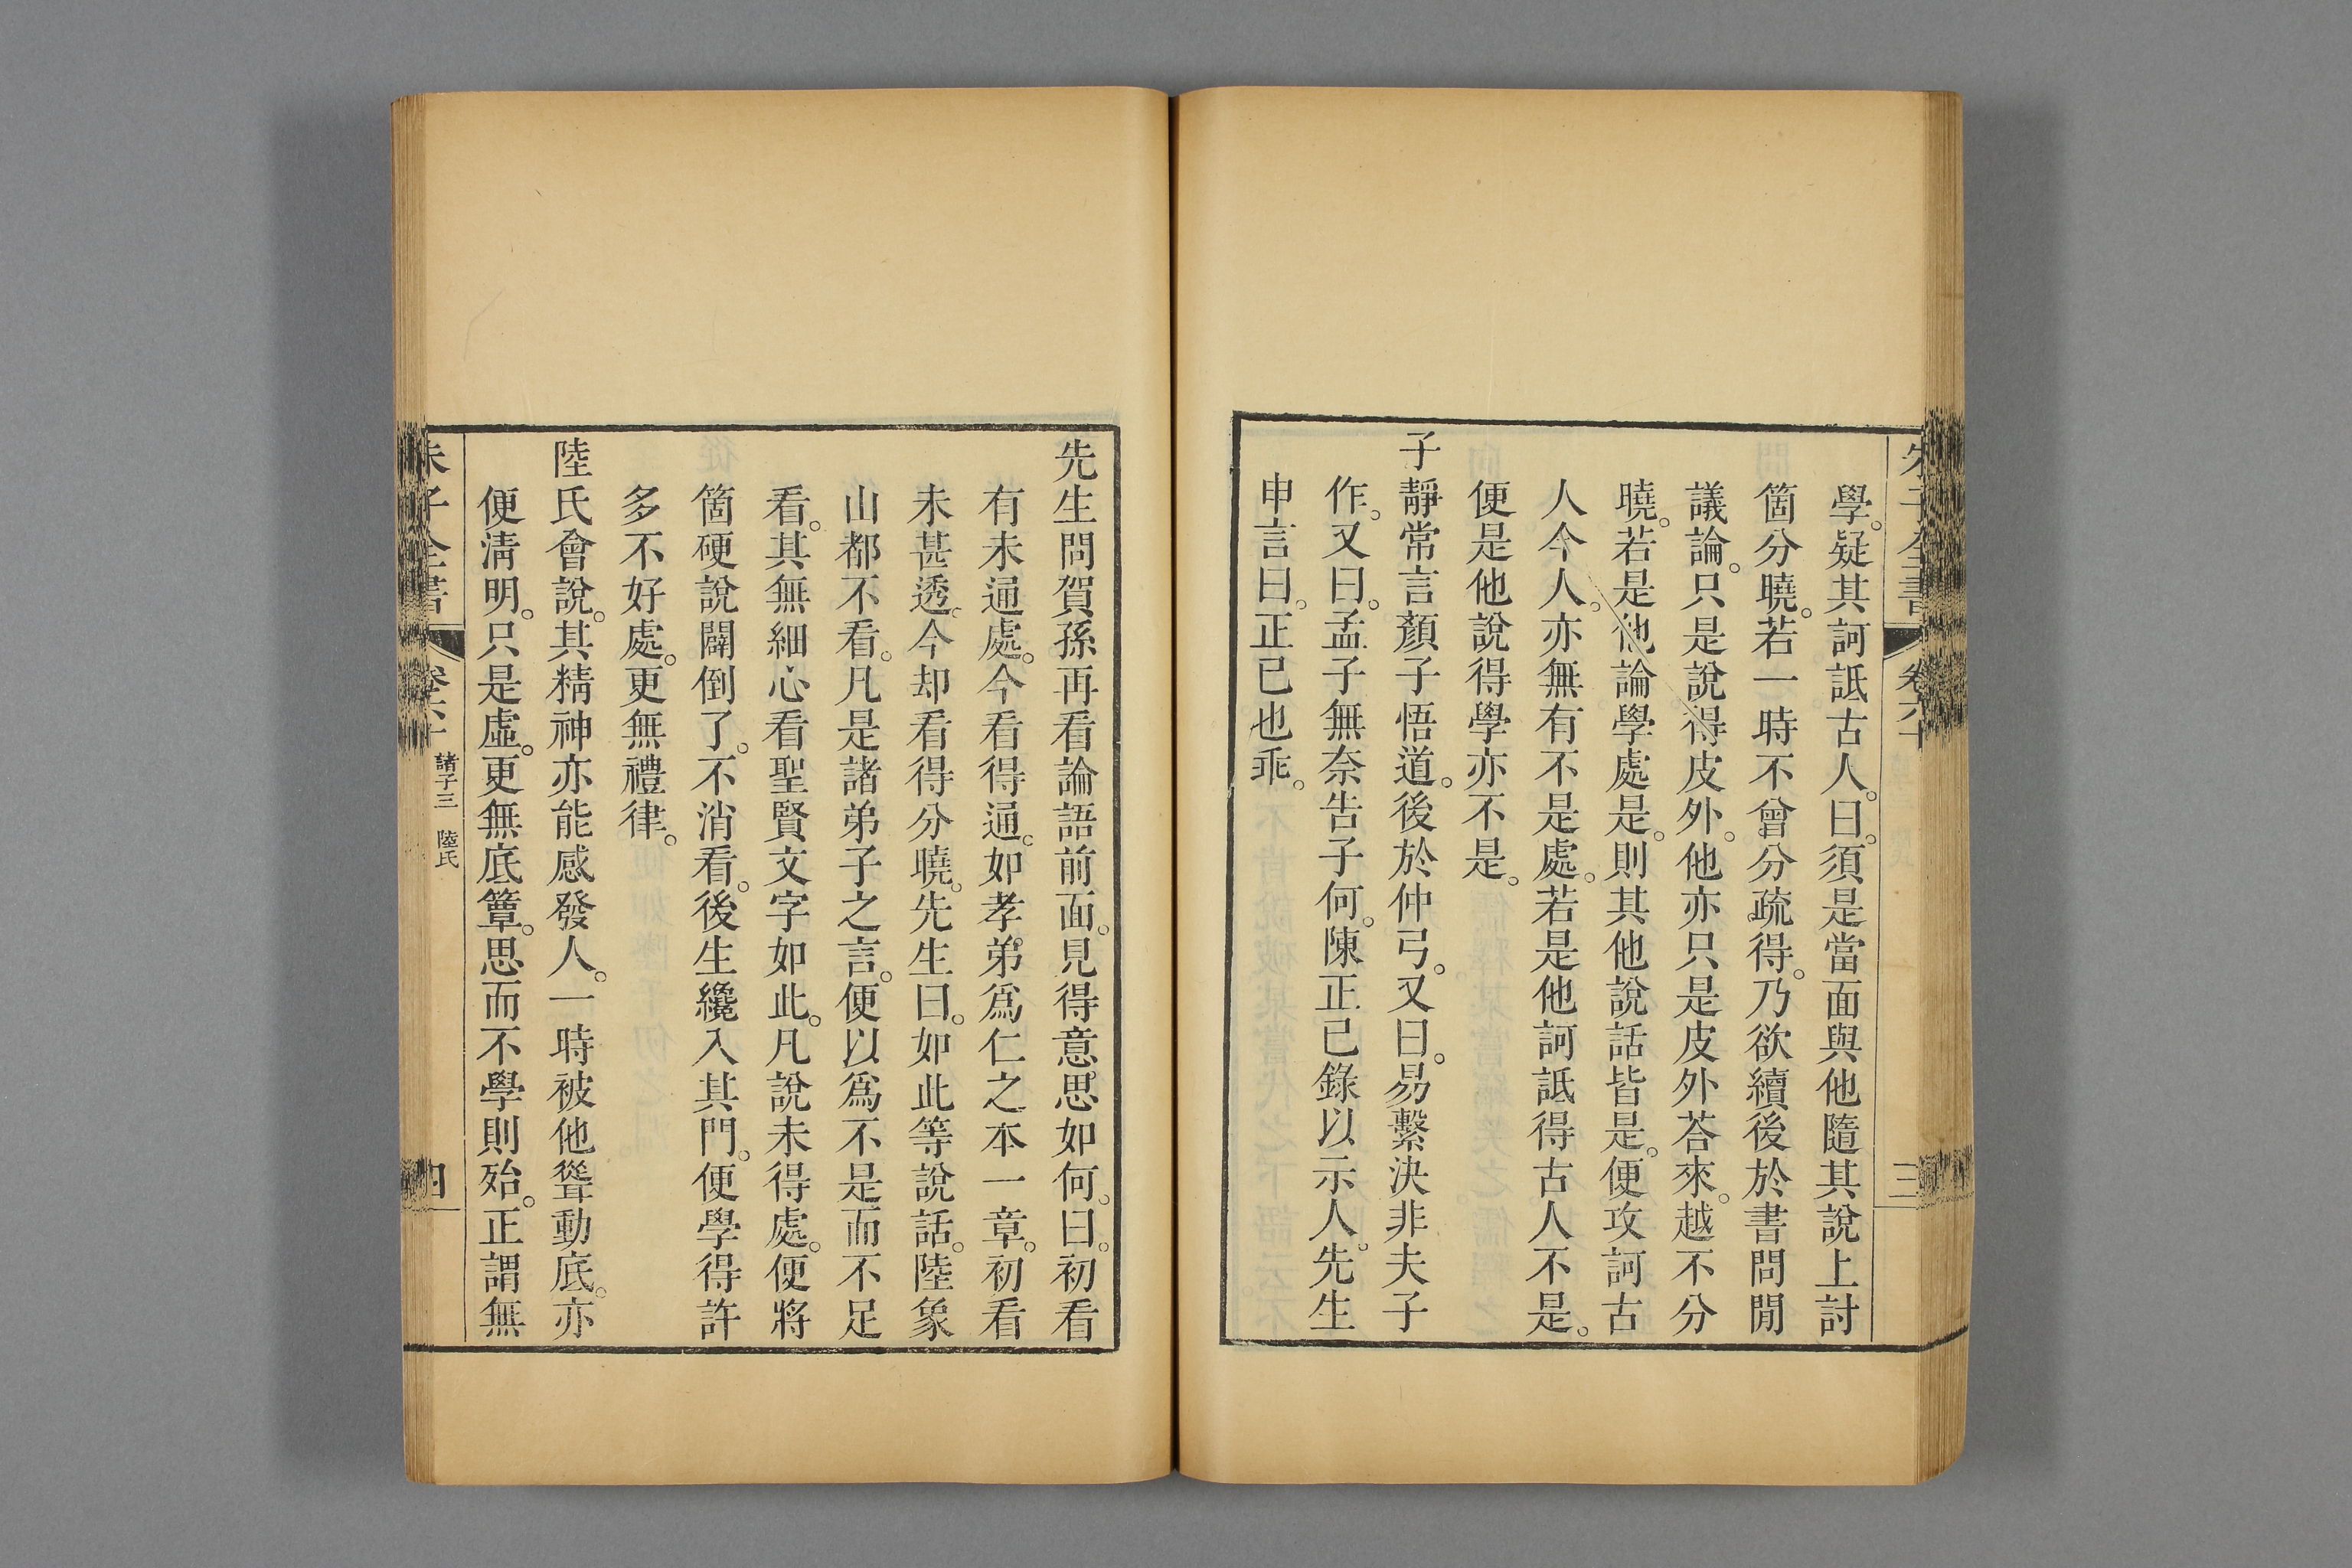 朱子全書 卷六十 三
學。疑其訶詆古人。曰。須是當面與他隨其說上討
箇分曉。若一時不曾分疏得。乃欲續後於書問閒
議論。只是說得皮外。他亦只是皮外荅來。越不分
曉。若是他論學處是。則其他說話皆是。便攻訶古
人今人。亦無有不是處。若是他訶詆得古人不是。
便是他說得學亦不是。
子靜常言顏子悟道。後於仲弓。又曰。易繫決非夫子
作。又曰。孟子無奈告子何。陳正己錄以示人。先生
申言曰。正己也乖。
先生問賀孫再看論語前面。見得意思如何。曰。初看
有未通處。今看得通。如孝弟爲仁之本一章。初看
未甚透。今却看得分曉。先生曰。如此等說話。陸象
山都不看。凡是諸弟子之言。便以爲不是而不足
看。其無細心看聖賢文字如此。凡說未得處。便將
箇硬說闢倒了。不消看。後生纔入其門。便學得許
多不好處。更無禮律。
陸氏會說。其精神亦能感發人。一時被他聳動底。亦
便淸明。只是虛。更無底簟。思而不學則殆。正謂無
朱子全書 卷六十 諸子三 陸氏 四